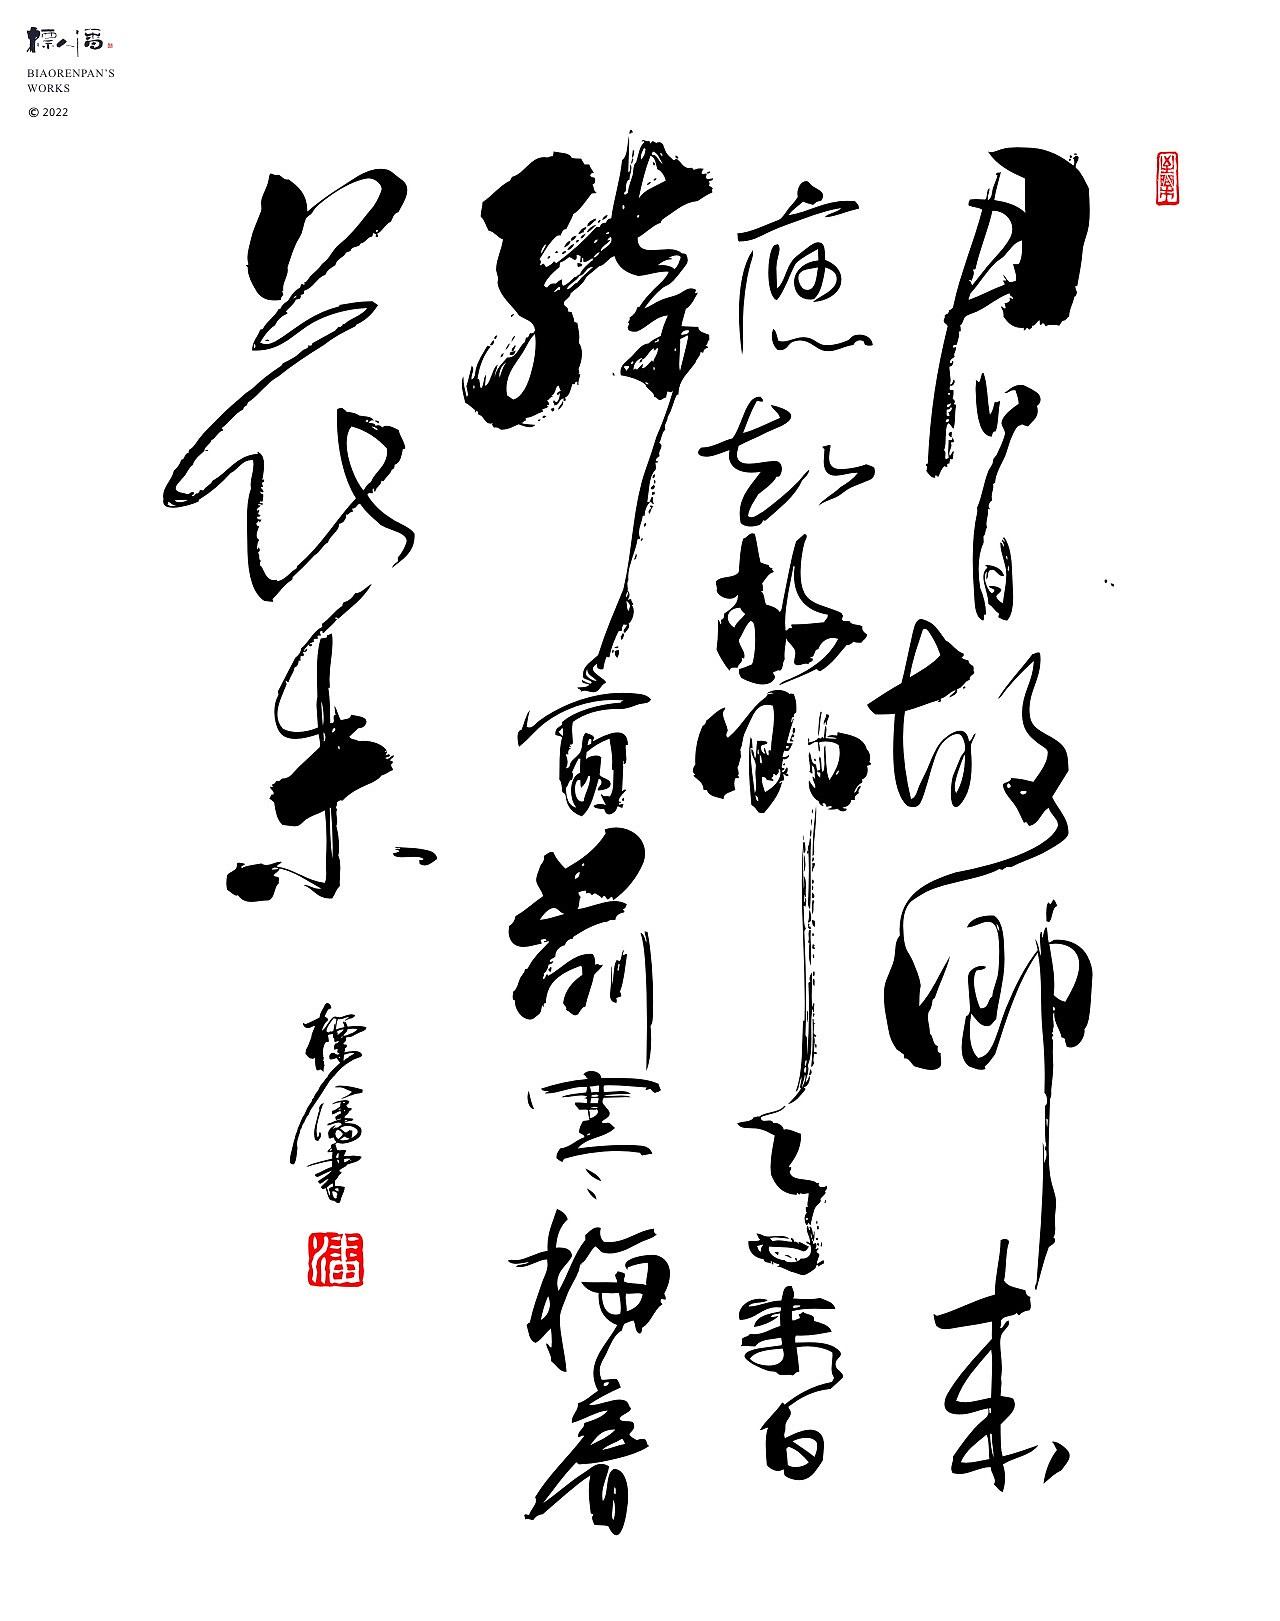 標人潘
BIAORENPAN'S
WORKS
© 2022
君自故鄉來
應知故鄉事來日
綺窗前寒梅著
花未
標潘書
潘